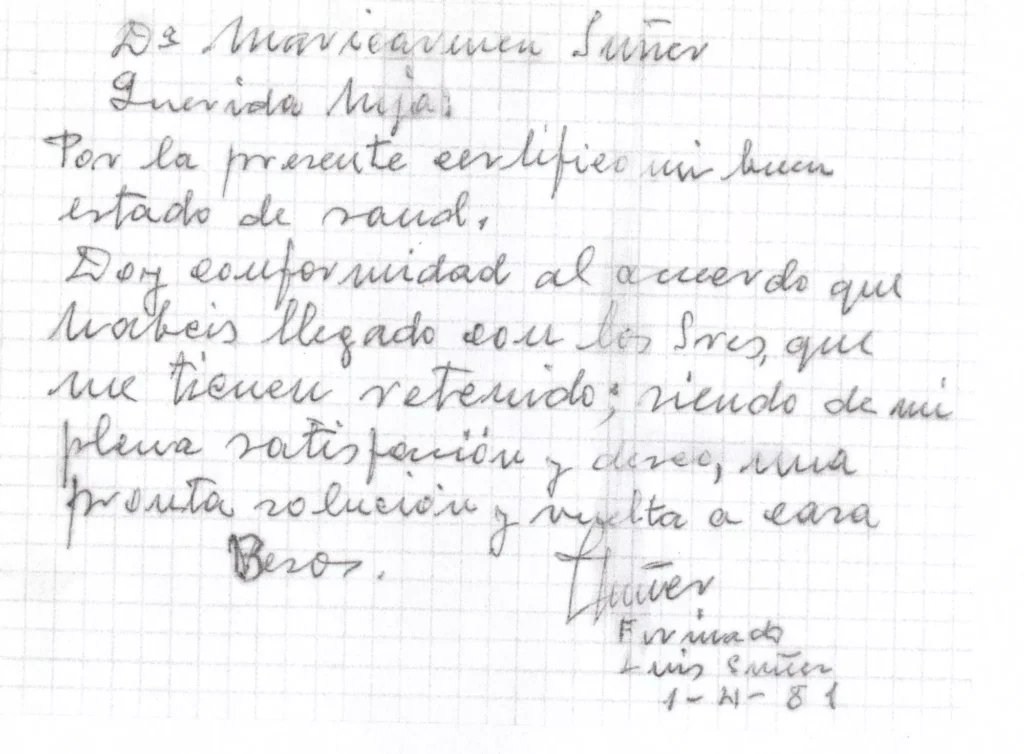 Dª Maricarmen Suñer
Querida hija:
Por la presente certifico mi buen
estado de saud.
Doy conformidad al acuerdo que
habeis llegado con los Sres, que
me tienen retenido; siendo de mi
plena satisfación y deseo, una
pronta solución y vuelta a casa
Besos.
LSuñer
Firmado
Luis Suñer
1-4-81